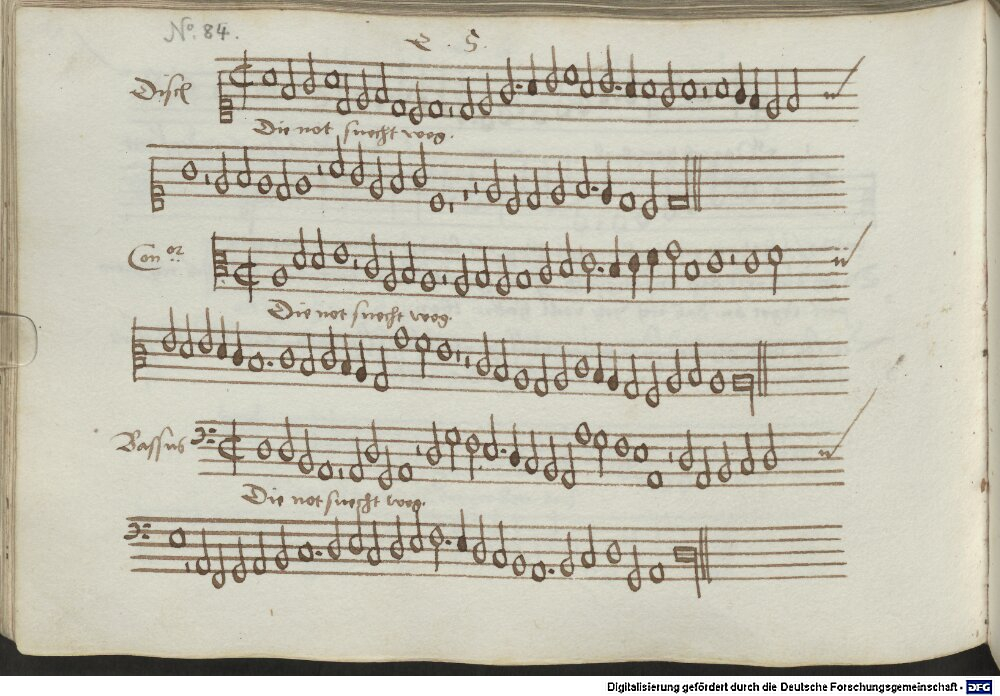 No. 84.
Discl
Die not suecht weg.
Con or
Die not suecht weg
Bassus
Die not suecht weg.
Digitalisierung gefördert durch die Deutsche Forschungsgemeinschaft - DFG